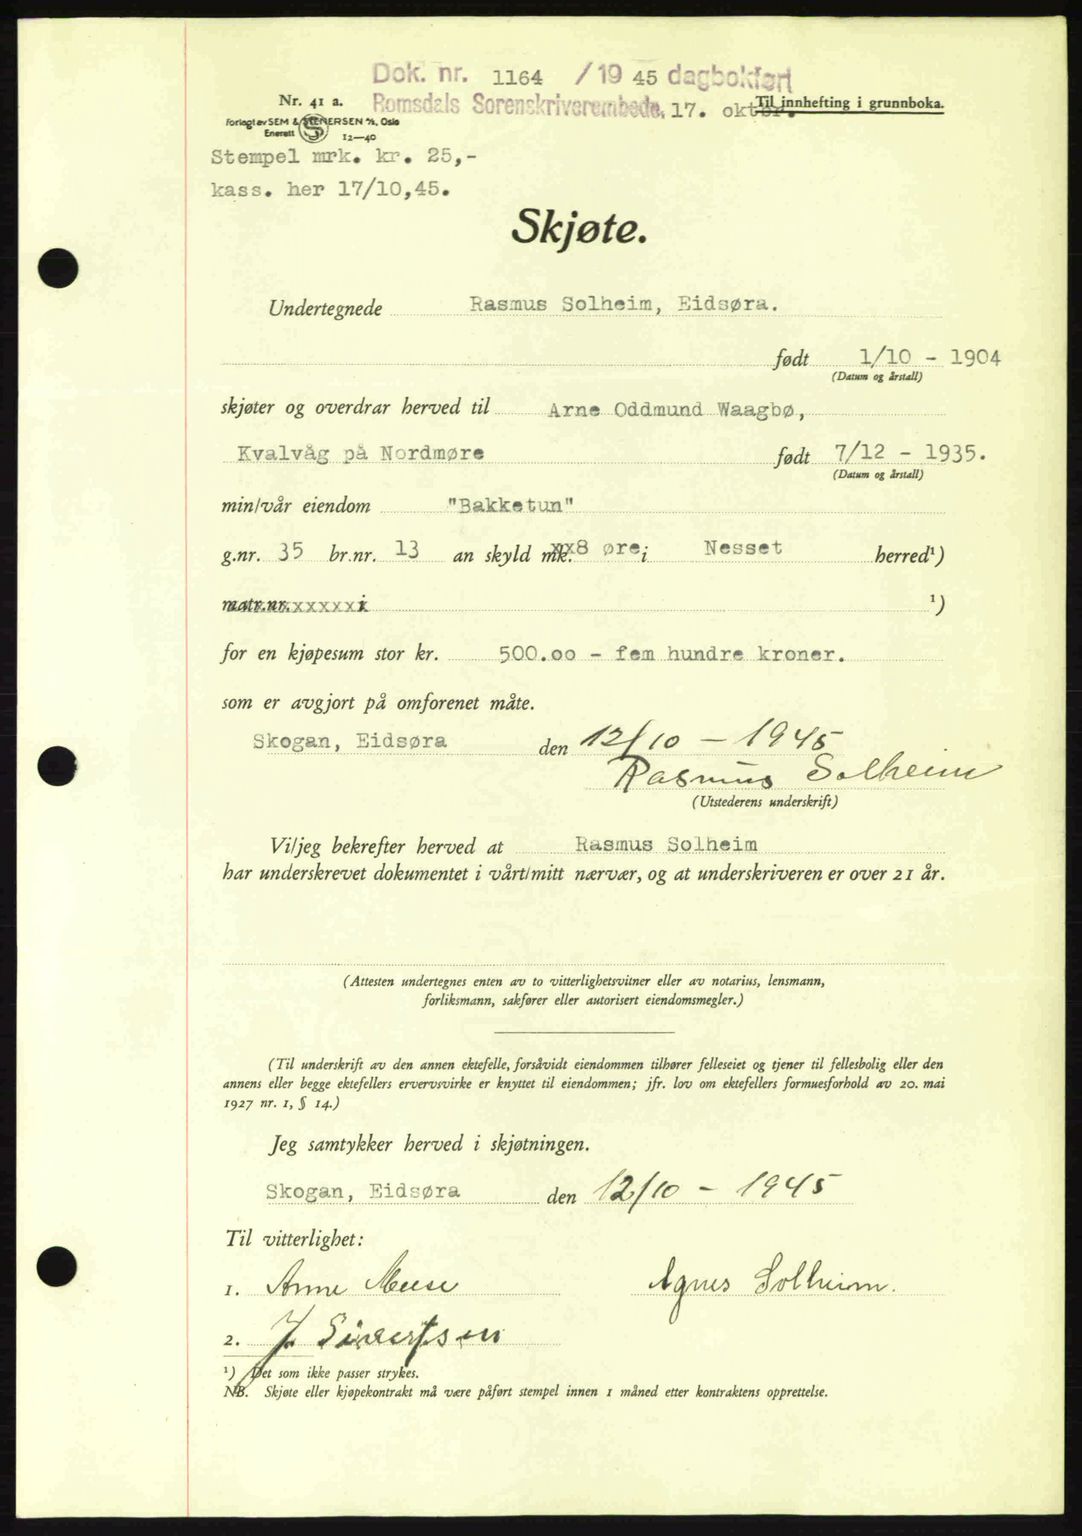 Dok. nr. 1164 /19 45 dagbokført
Nr. 41 a. Romsdals Sorenskriverembede, 17. oktbr. Til innhefting i grunnboka.
Forlagt av SEM & STENERSEN A/S, Oslo
Enerett S 12—40
Stempel mrk. kr. 25,-
kass. her 17/10,45.
Skjøte.
Undertegnede Rasmus Solheim, Eidsøra.
født 1/10 - 1904
(Datum og årstall)
skjøter og overdrar herved til Arne Oddmund Waagbø,
Kvalvåg på Nordmøre født 7/12 - 1935.
(Datum og årstall)
min/vår eiendom "Bakketun"
g.nr. 35 br.nr. 13 an skyld mk. xx8 øre i Nesset herred¹)
matr.nr.xxxxxxi ¹)
for en kjøpesum stor kr. 500.oo - fem hundre kroner.
som er avgjort på omforenet måte.
Skogan, Eidsøra den 12/10 - 1945
Rasmus Solheim
(Utstederens underskrift)
Vi/jeg bekrefter herved at Rasmus Solheim
har underskrevet dokumentet i vårt/mitt nærvær, og at underskriveren er over 21 år.
(Attesten undertegnes enten av to vitterlighetsvitner eller av notarius, lensmann,
forliksmann, sakfører eller autorisert eiendomsmegler.)
(Til underskrift av den annen ektefelle, forsåvidt eiendommen tilhører felleseiet og tjener til fellesbolig eller den
annens eller begge ektefellers ervervsvirke er knyttet til eiendommen; jfr. lov om ektefellers formuesforhold av 20. mai
1927 nr. 1, § 14.)
Jeg samtykker herved i skjøtningen.
Skogan, Eidsøra den 12/10 - 1945
Til vitterlighet:
1. Anne Meese Agnes Solheim.
2. J. Sivertsen
¹) Det som ikke passer strykes.
NB. Skjøte eller kjøpekontrakt må være påført stempel innen 1 måned etter kontraktens opprettelse.